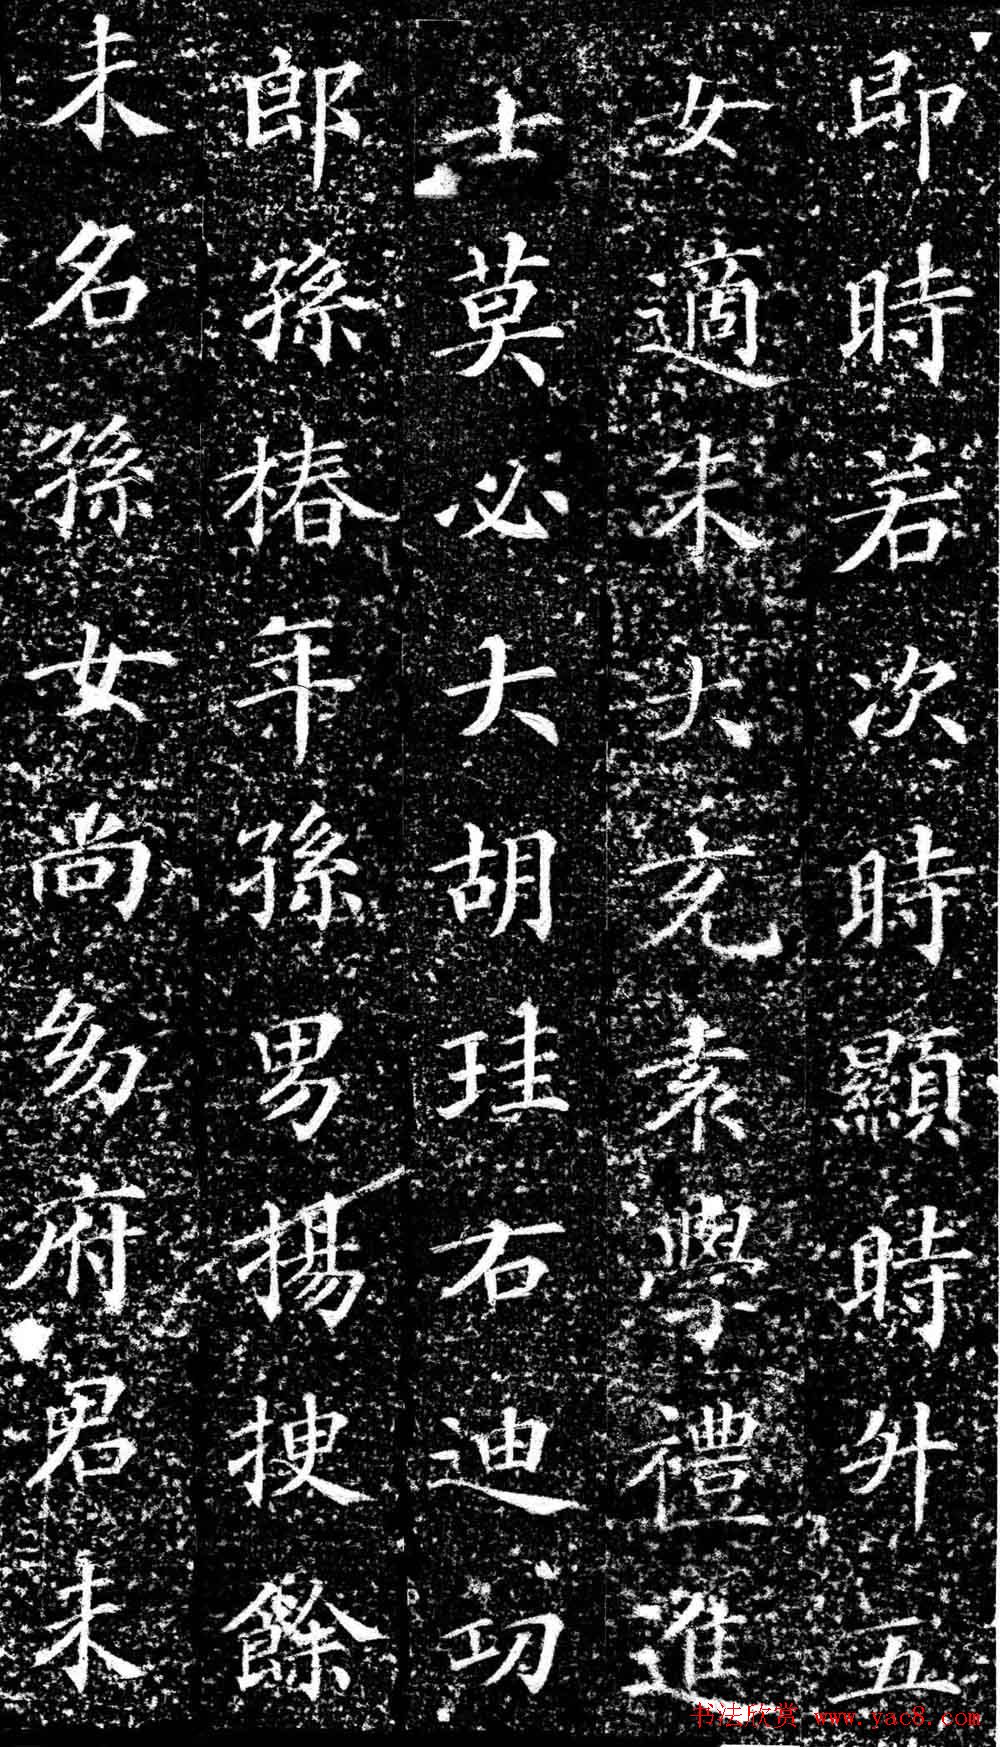 即時若次時顯時升五
女適朱大充袁學禮進
士莫必大胡珪右迪功
郎孫椿年孫男揚揵餘
未名孫女尚幼府君未
书法欣赏 www.yac8.com